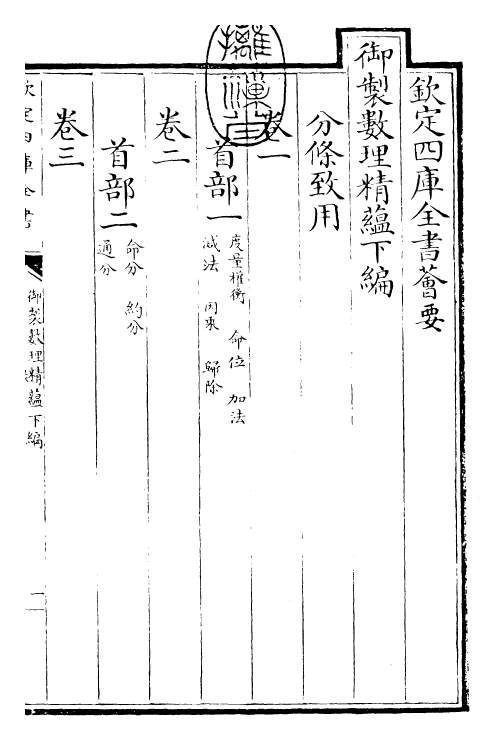 欽定四庫全書薈要
御製數理精蘊下編
分條致用
卷一
首部一
度量權衡 命位 加法
減法 因乘 歸除
卷二
首部二
命分 約分
通分
卷三
欽定四庫全書
御製數理精蘊下編